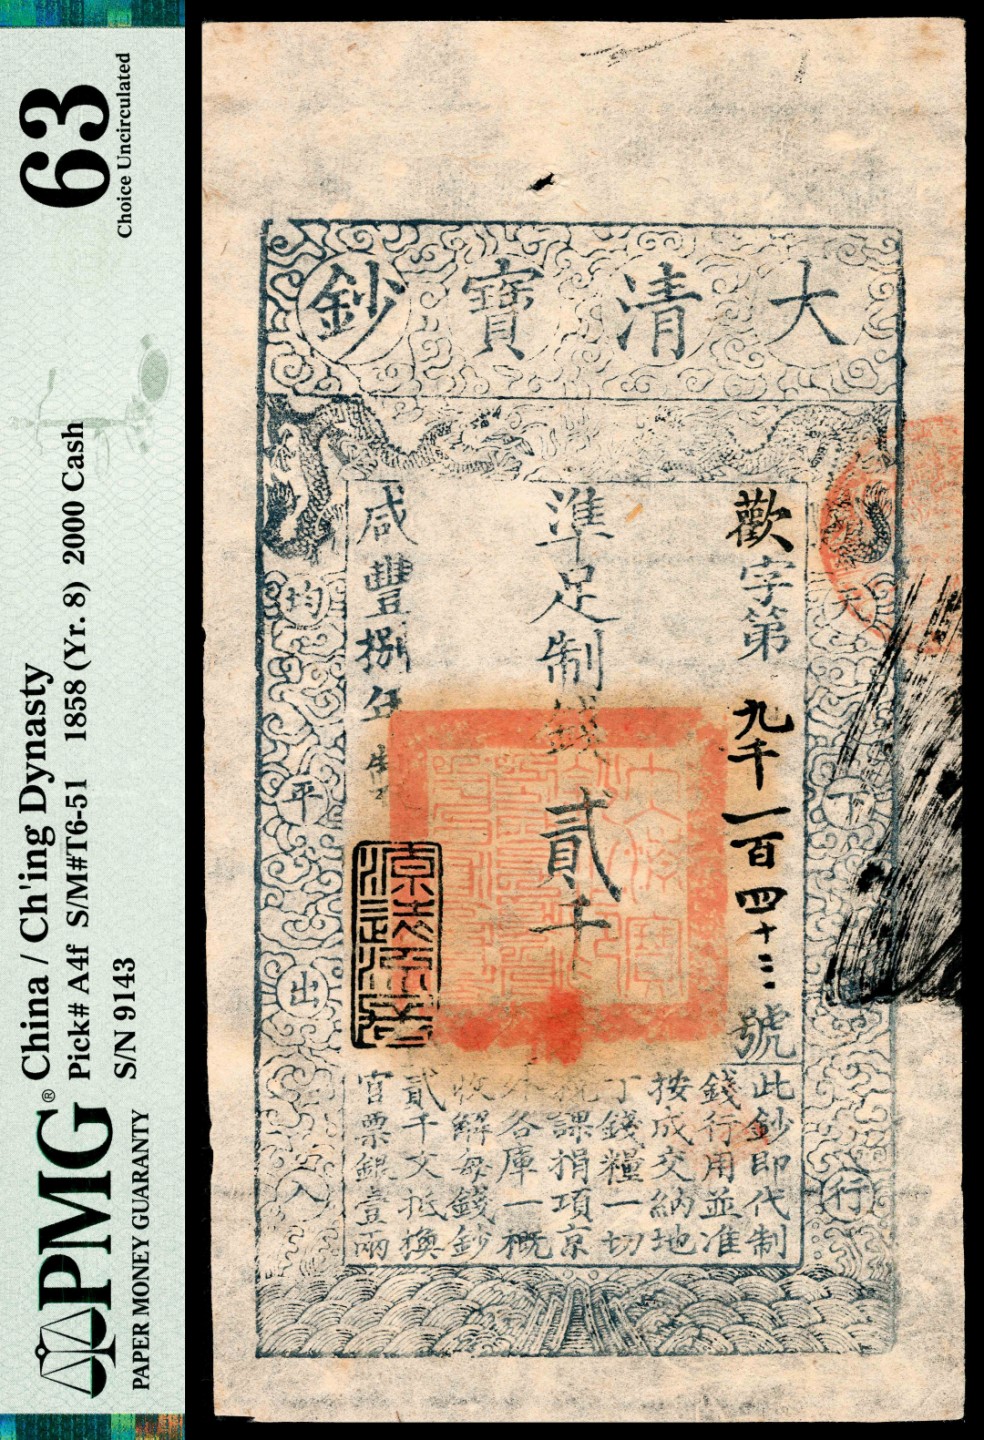 PMG®
PAPER MONEY GUARANTY
China / Ch'ing Dynasty
Pick# A4f S/M#T6-51 1858 (Yr. 8) 2000 Cash
S/N 9143
63
Choice Uncirculated
大清寶鈔
天下行
均平出入
歡字第九千一百四十三號
準足制錢貳千
咸豐捌年 製
此鈔即代制
錢行用並准
按成交納地
丁錢糧一切
稅課捐項京
外各庫一概
收解每錢鈔
貳千文抵換
官票銀壹兩